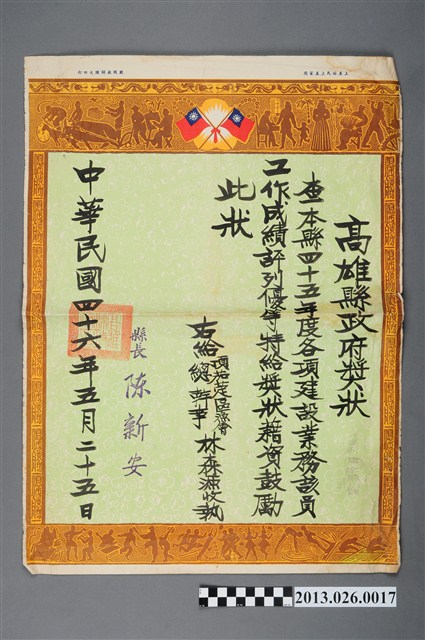 高雄縣政府獎狀
查本縣四十五年度各項建設業務該員
工作成績評列優等特給獎狀藉資鼓勵
此狀
右給
總幹事 林森源收執
縣長 陳新安
中華民國四十六年五月二十五日
2013.026.0017